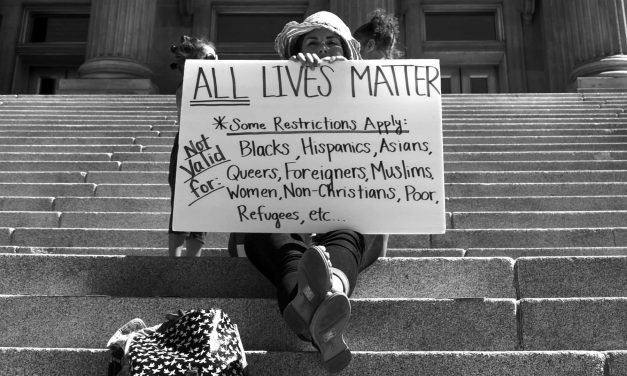 ALL LIVES MATTER
*Some Restrictions Apply:
Not Valid for:
Blacks, Hispanics, Asians,
Queers, Foreigners, Muslims,
Women, Non-Christians, Poor,
Refugees, etc...